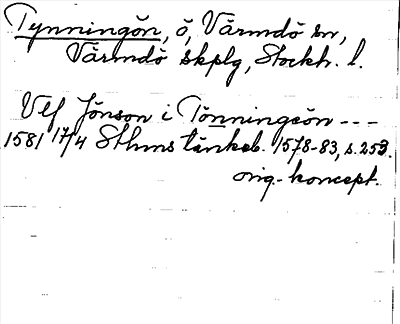 Tynningön, ö, Värmdö sn,
Värmdö skplg, Stockh. l.
Ulf Jönson i Tönningeön ---
1581 17/4 Sthms tänkeb. 1578-83, s. 253.
orig.-koncept.